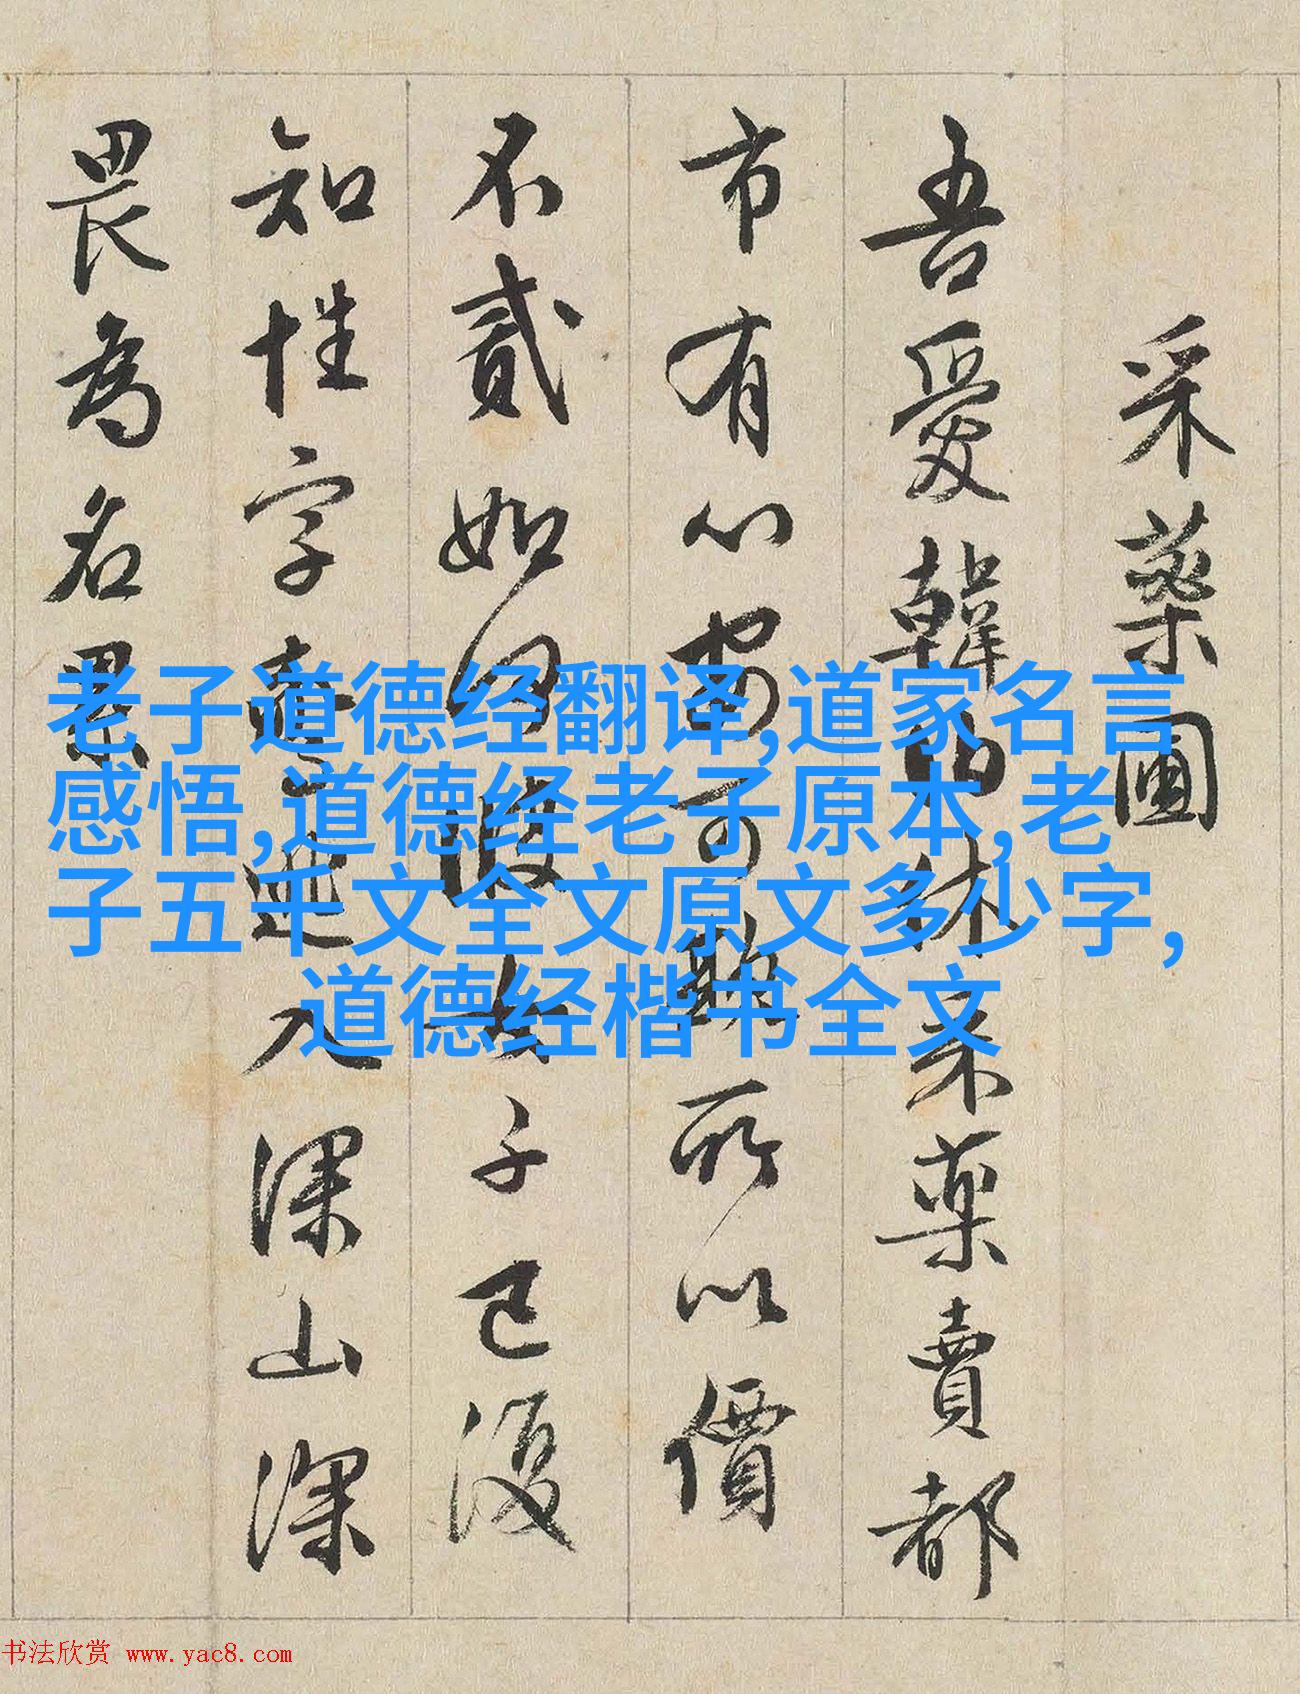 采藥圃
吾愛韓伯休采藥賣都
市有心安可欺所以價
不貳如何彼女子已復
知姓字驚逃入深山深
畏為名累
老子道德经翻译,道家名言
感悟,道德经老子原本,老
子五千文全文原文多少字,
道德经楷书全文
书法欣赏 www.yac8.com